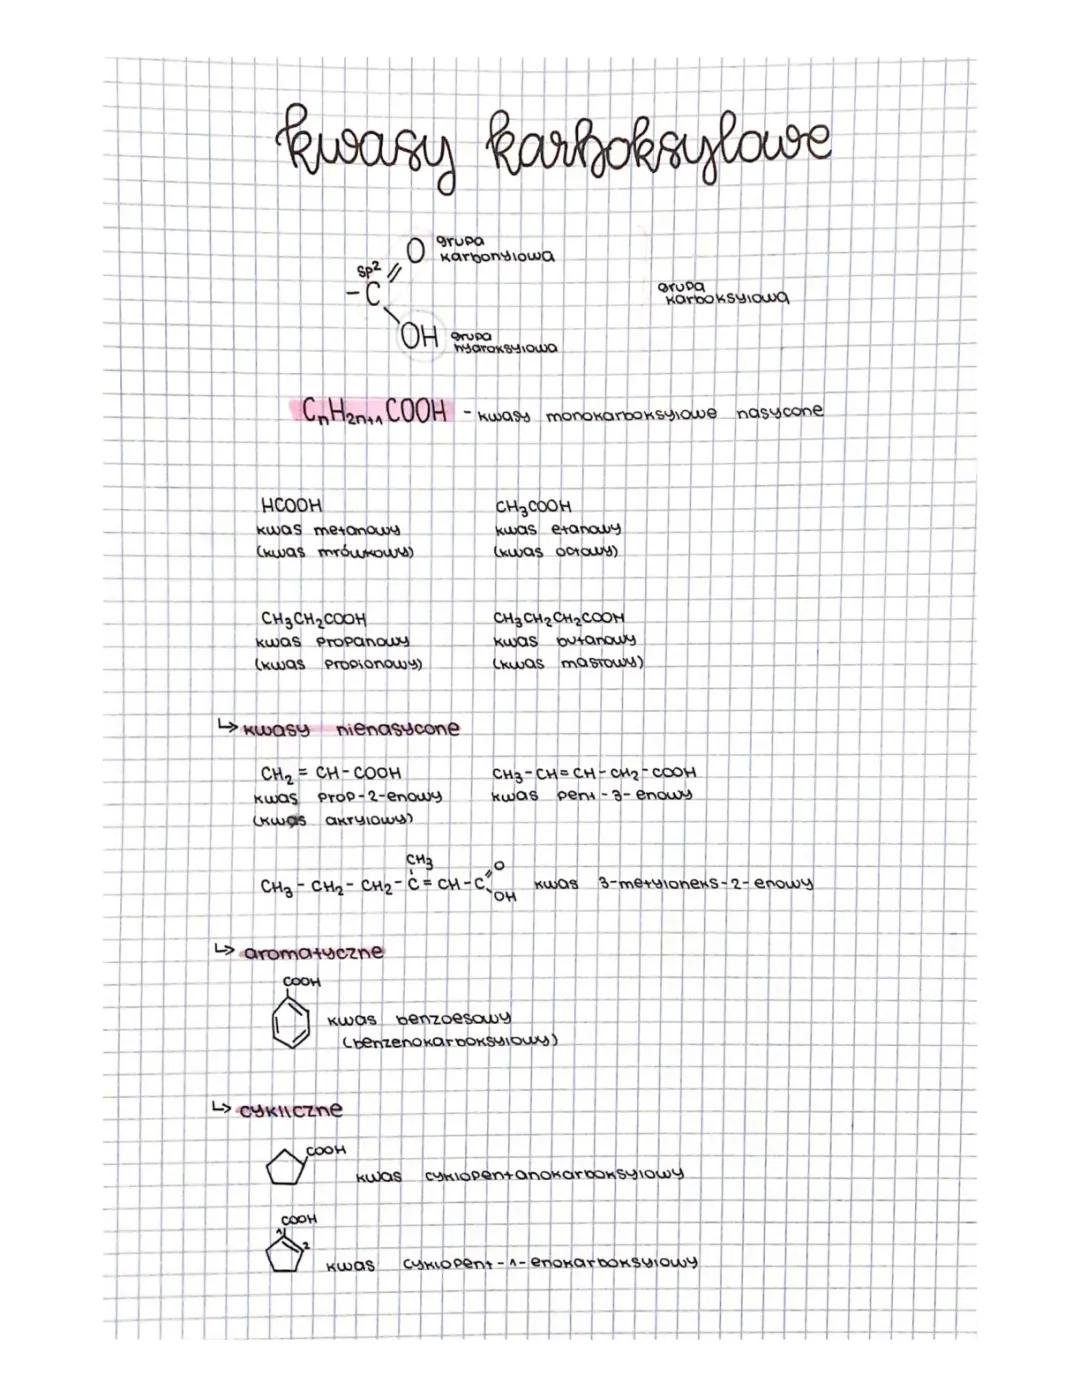 kwasy karboksylowe
O grupa
karbonylowa
sp²
-C
grupa
karboksylowa
OH grupa
hydroksylowa
CₙH₂ₙ₊₁COOH - kwasy monokarboksylowe nasycone
HCOOH
kwas metanowy
(kwas mrówkowy)
CH₃COOH
kwas etanowy
(kwas octowy)
CH₃CH₂COOH
kwas propanowy
(kwas propionowy)
CH₃CH₂CH₂COOH
kwas butanowy
(kwas masłowy)
↳ kwasy nienasycone
CH₂ = CH-COOH
kwas prop-2-enowy
(kwas akrylowy)
CH₃-CH=CH-CH₂-COOH
kwas pent-3-enowy
CH₃
O
CH₃-CH₂-CH₂-C=CH-C kwas 3-metyloheks-2-enowy
OH
↳ aromatyczne
COOH
kwas benzoesowy
(benzenokarboksylowy)
↳ cykliczne
COOH
kwas cyklopentanokarboksylowy
COOH
1
2
kwas cyklopent-1-enokarboksylowy